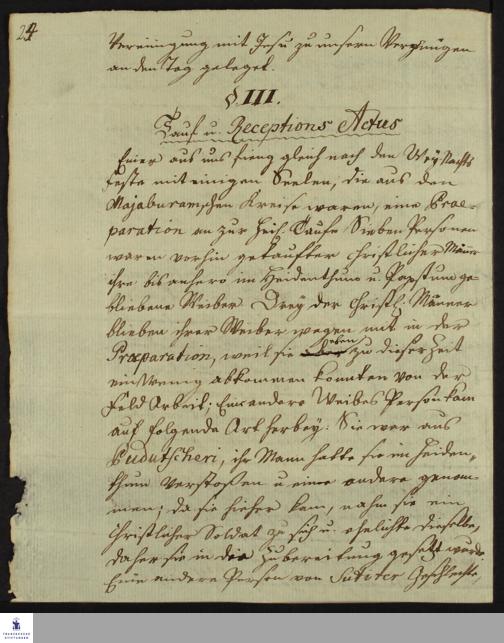 24
Vereinigung mit Jesu zu unsern Vergnügen
an den Tag geleget.
§. III.
Tauf u. Receptions Actus
Einer aus uns fieng gleich nach den Weÿhnachts
Feste mit einigen Seelen, die aus den
Majaburamschen Kreise waren, eine Prae-
paration an zur heil. Taufe. Sieben Personen
waren vorhin getauffter christlicher Männer
ihre bis anhero im Heidenthum u. Papstum ge-
bliebene Weiber. Dreÿ der christl. Männer
blieben ihrer Weiber wegen mit in der
Præparation, weil sie eben zu dieser Zeit
ein wenig abkommen konnten von der
Feld Arbeit; Eine andere Weibes Person kam
auf folgende Art herbeÿ: Sie war aus
Pudutscheri, ihr Mann hatte sie im Heiden-
thum verstoßen u. eine andere genom-
men; da sie hieher kam, nahm sie ein
christlicher Soldat zu sich u. ehelichte dieselbe,
daher sie in die Zubereitung gesetzt wurde
Eine andere Person von Sutirer Geschlechte,
FRANCKESCHE
STIFTUNGEN